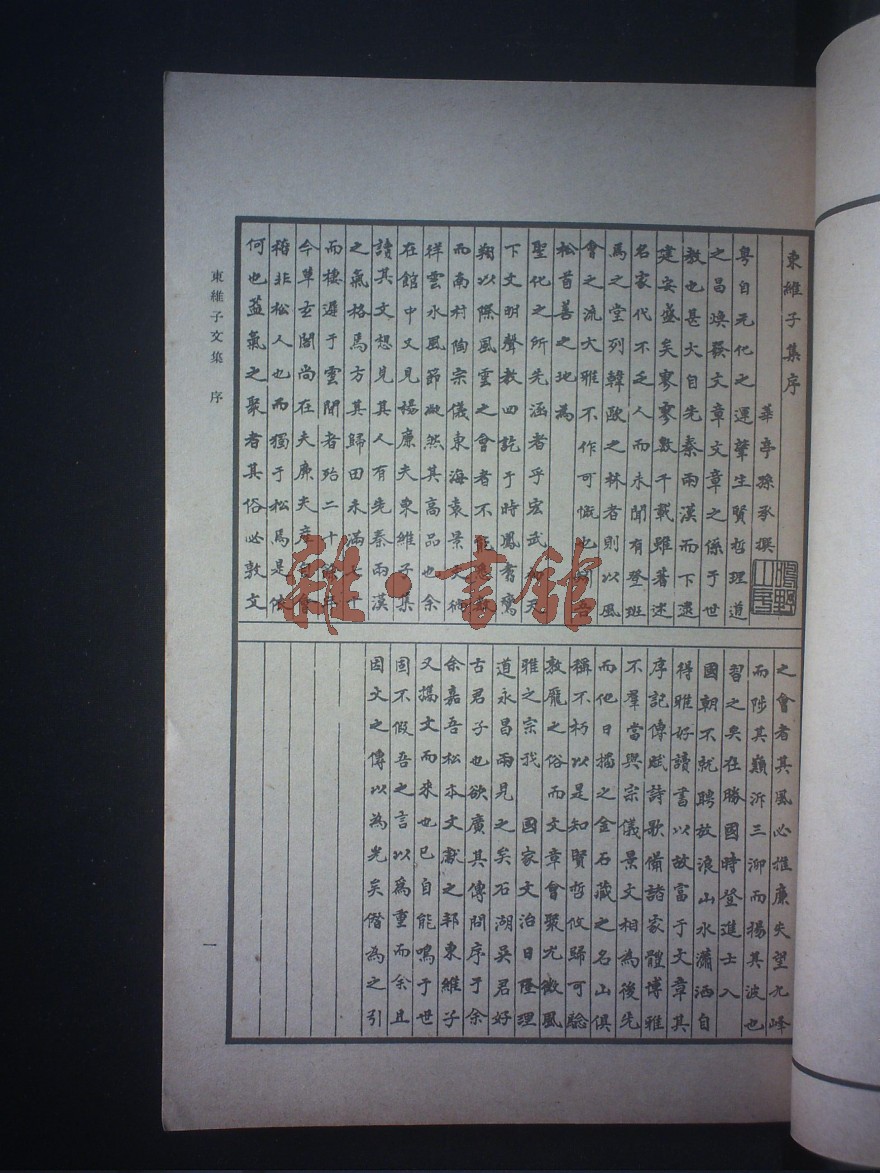 東維子集序
華亭孫承撰
粤自元化之運肇生賢哲理道
之昌煥發文章文章之係于世
教也甚大自先秦兩漢而下逮
建安盛矣寥寥數千載雖著述
名家代不乏人而未聞有登班
馬之堂列韓歐之林者則以風
會之流大雅不作可慨也吾
松首善之地爲
聖化之所先涵者乎宏武天
下文明聲教四訖于時鳳翥鸞
翔以際風雲之會者不
而南村陶宗儀東海袁景文
祥雲水風節皦然其高品也余
在館中又見楊廉夫東維子集
讀其文想見其人有先秦兩漢
之氣格焉方其歸田未滿
而棲遲于雲間者殆二十餘年
今草玄閣尚在夫廉夫
稽非松人也而獨于松焉是依
何也蓋氣之聚者其俗必敦文
之會者其風必推廉夫望九峰
而陟其巔泝三泖而揚其波也
習之矣在勝國時登進士入
國朝不就聘放浪山水瀟洒自
得雅好讀書以故富于文章其
序記傳賦詩歌備諸家體博雅
不羣當與宗儀景文相為後先
而他日搨之金石藏之名山俱
稱不朽以是知賢哲攸歸可驗
敦龐之俗而文章會聚尤徵風
雅之宗我 國家文治日隆理
道永昌兩見之矣石湖吴君好
古君子也欲廣其傳問序于余
余嘉吾松本文獻之邦東維子
又搞文而來也已自能鳴于世
固不假吾之言以爲重而余且
因文之傳以為光矣僭為之引
東維子文集 序
一
雜·書館